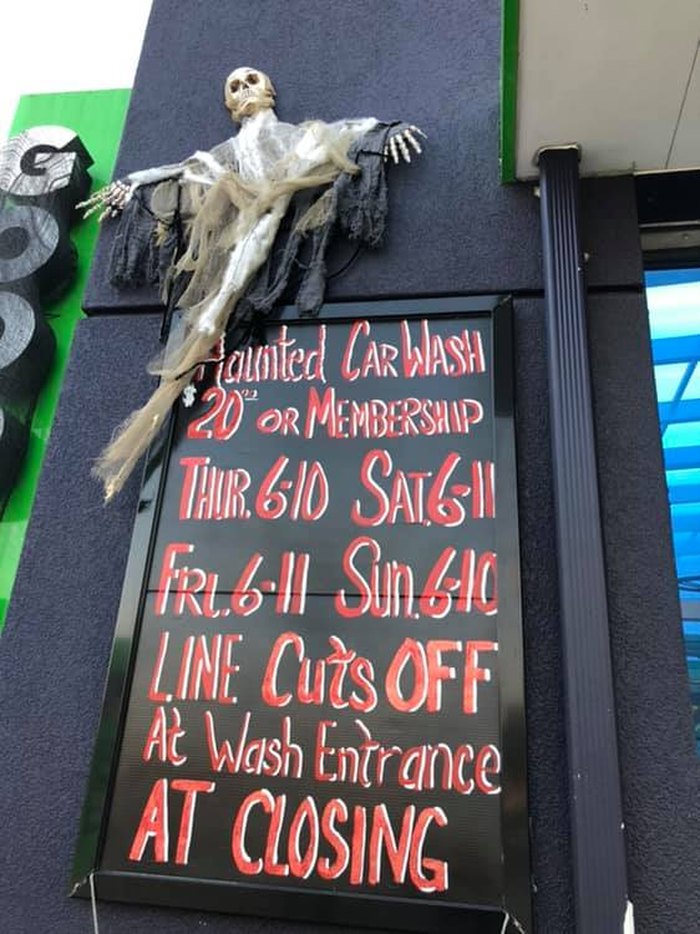 GOO
Haunted CAR WASH
$20.00 OR MEMBERSHIP
THUR. 6-10 SAT. 6-11
FRI. 6-11 Sun. 6-10
LINE Cuts OFF
At Wash Entrance
AT CLOSING